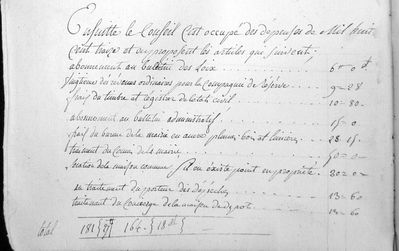 Ensuitte le Conseil s'est occupé des depenses de Mil huit
cent treize et en proposent les articles qui suivent;
abonnement au bulletin des Loix . . . . 6 = 0 f
des revenus ordinaires pour la Compagnie de reserve . . . 9 = 28
frais du timbre et registres de l'etat civil . . . . 10 = 80
abonnement au bulletin administratif . . . . 15 = 0
frais du bureau de la mairie en ancre plumes bois et lumiere . . 28 15
traitement du Comis de la mairie . . . . 50 = 0
location de la maison commune s'il en existe point en propriété . 30 = 0
au traitement du porteur des depeches . . . . 13 = 60
traitement du Concierge de la maison de depot . . . 60
total